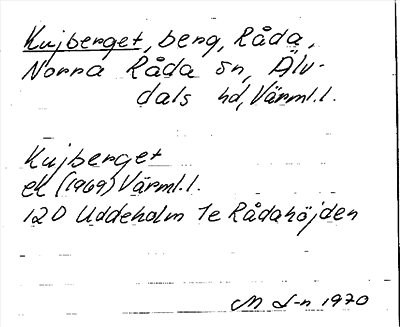 Kujberget, berg, Råda,
Norra Råda sn, Älv-
dals hd, Värml.l.
Kujberget
ek (1969) Värml.l.
12D Uddeholm 1e Rådahöjden
M L-n 1970